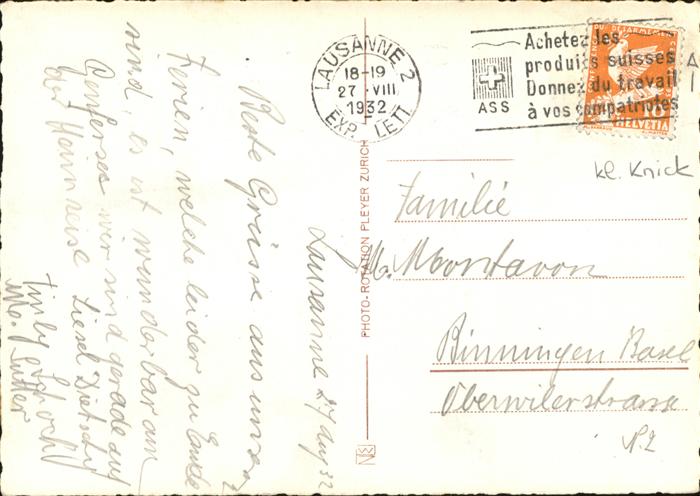 Lausanne 27 Aug 32
Beste Grüsse aus unsern
Ferien, welche leider zu Ende
sind, es ist wunderbar am
Genfersee wir sind gerade auf
der Heimreise Liesel Dietschy
LAUSANNE 2
18-19
27 VIII
1932
EXP. LETT.
ASS
Achetez les
produits suisses
Donnez du travail
à vos compatriotes
DU DESARMEMENT
10
HELVETIA
kl. Knick
Familie
M. Montavon
Binningen Basel
Oberwilerstrasse
N. 2
PHOTO-ROTATION PLEYER ZURICH